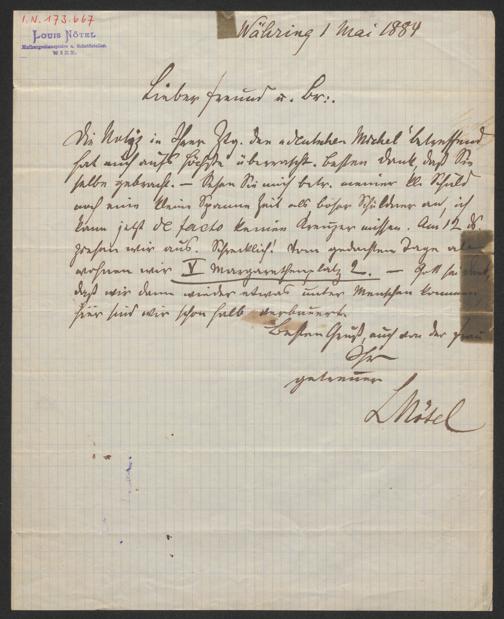 I.N. 173.667
LOUIS NÖTEL
Hofburgschauspieler u. Schriftsteller.
WIEN.
Währing 1 Mai 1884
Lieber Freund u. Br:.
Die Notiz in Ihrer Ztg. den „deutschen Michel" betreffend
hat mich aufs höchste überrascht. Besten Dank, daß Sie
selbe gebracht. — Sehen Sie mich betr. meiner kl. Schuld
noch eine kleine Spanne Zeit als böser Schuldner an, ich
kann jetzt de facto keinen Kreuzer missen. Am 12 ds
ziehen wir aus. Schrecklich! Vom gedachten Tage
wohnen wir V Margarethenplatz 2. — Gott sei
daß wir dann wieder etwas unter Menschen kommen
hier sind wir schon halb verbauert.
Besten Gruß, auch von der Frau
Ihr
getreuer
LNötel